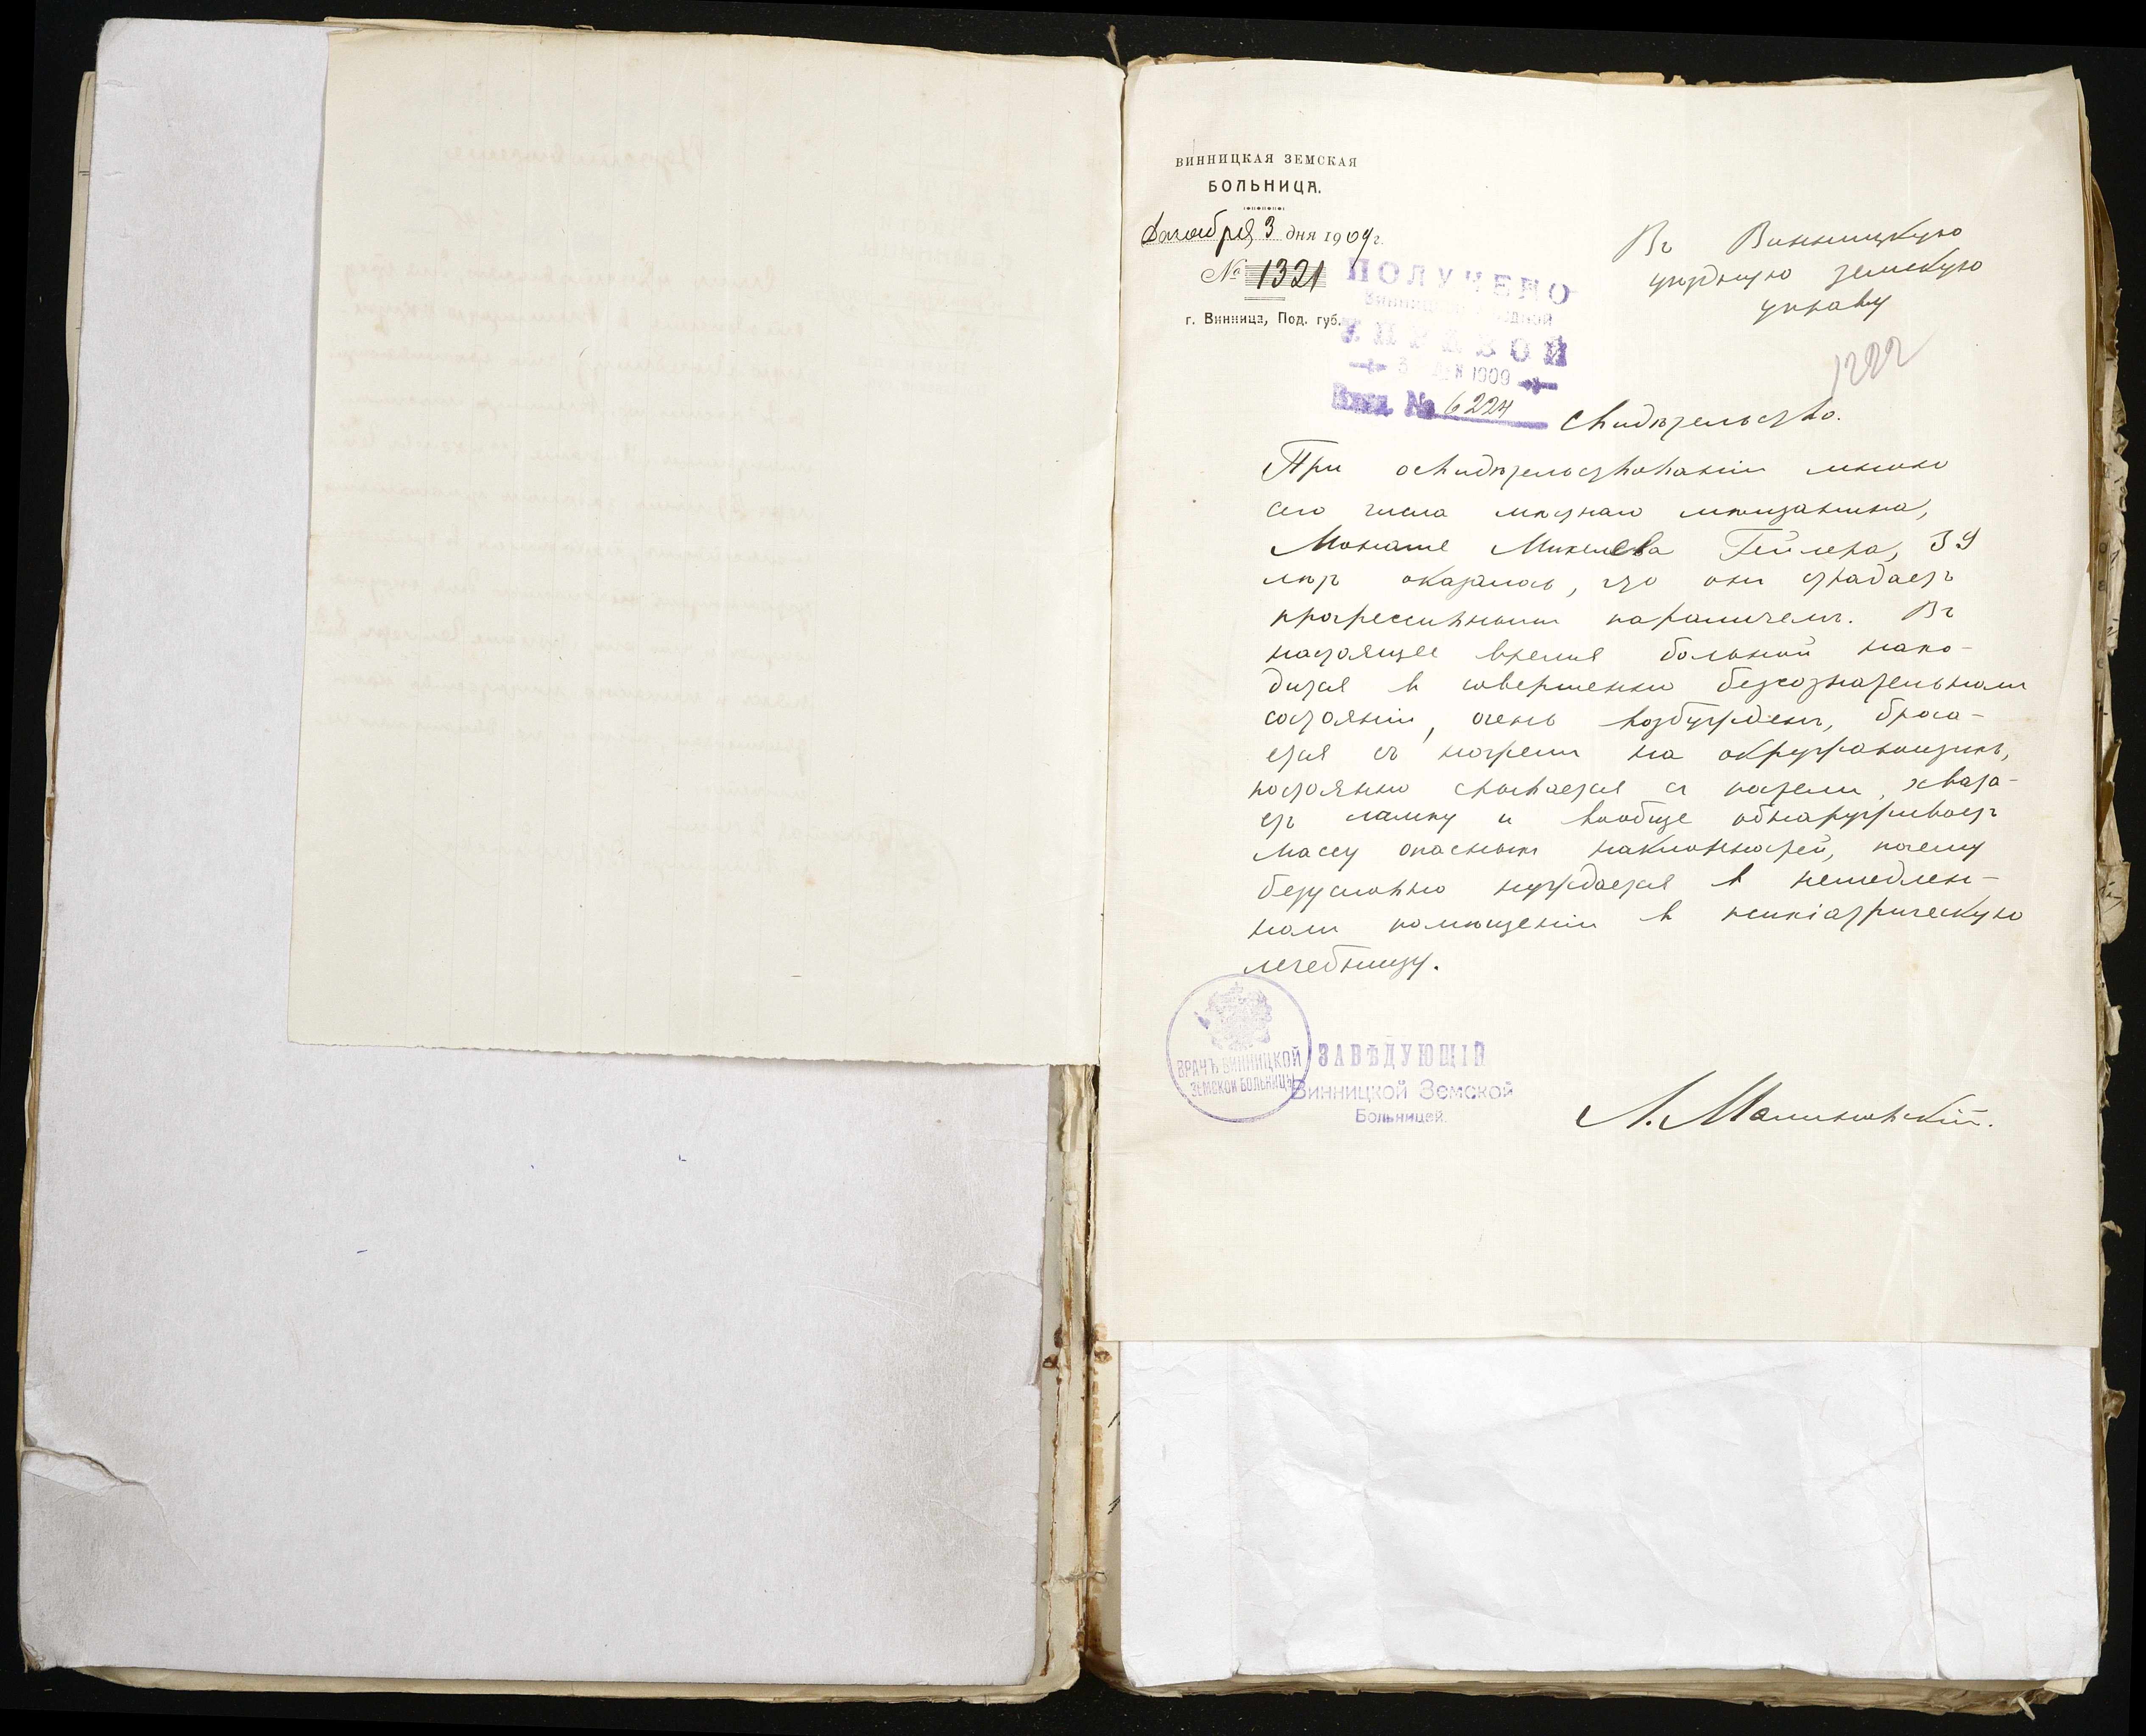 ВИННИЦКАЯ ЗЕМСКАЯ
БОЛЬНИЦА.
Декабря 3 дня 1909 г.
№ 1321
г. Винница, Под. губ.
ПОЛУЧЕНО
Винницкой
УПРАВОЙ
3 ДЕК 1909
Вход. № 6224
Въ Винницкую
уѣздную земскую
управу
1222
Свидѣтельство.
При освидѣтельствованіи мною
сего числа мѣстнаго мѣщанина,
Монаше Микелева Гейлера, 39
лѣтъ оказалось, что онъ страдаетъ
прогрессивнымъ параличемъ. Въ
настоящее время больной нахо-
дится в совершенно безсознательномъ
состояніи, очень возбужденъ, броса-
ется съ ногтями на окружающихъ,
постоянно срывается съ постели, хвата-
етъ лампу и вообще обнаруживаетъ
массу опасныхъ наклонностей, почему
безусловно нуждается в немедлен-
номъ помѣщеніи в психіатрическую
лечебницу.
ВРАЧЪ ВИННИЦКОЙ
ЗЕМСКОЙ БОЛЬНИЦЫ
ЗАВѢДУЮЩІЙ
Винницкой Земской
Больницей.
Л. Малиновскій.